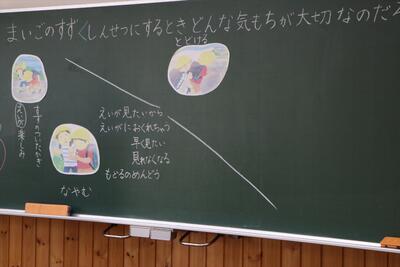 まいごのすず
しんせつにするときどんな気もちが大切なのだ
とどける
えいが楽しみ
えいが見たいから
えいがにおくれちゃう
早く見たい
見れなくなる
もどるのめんどう
なやむ